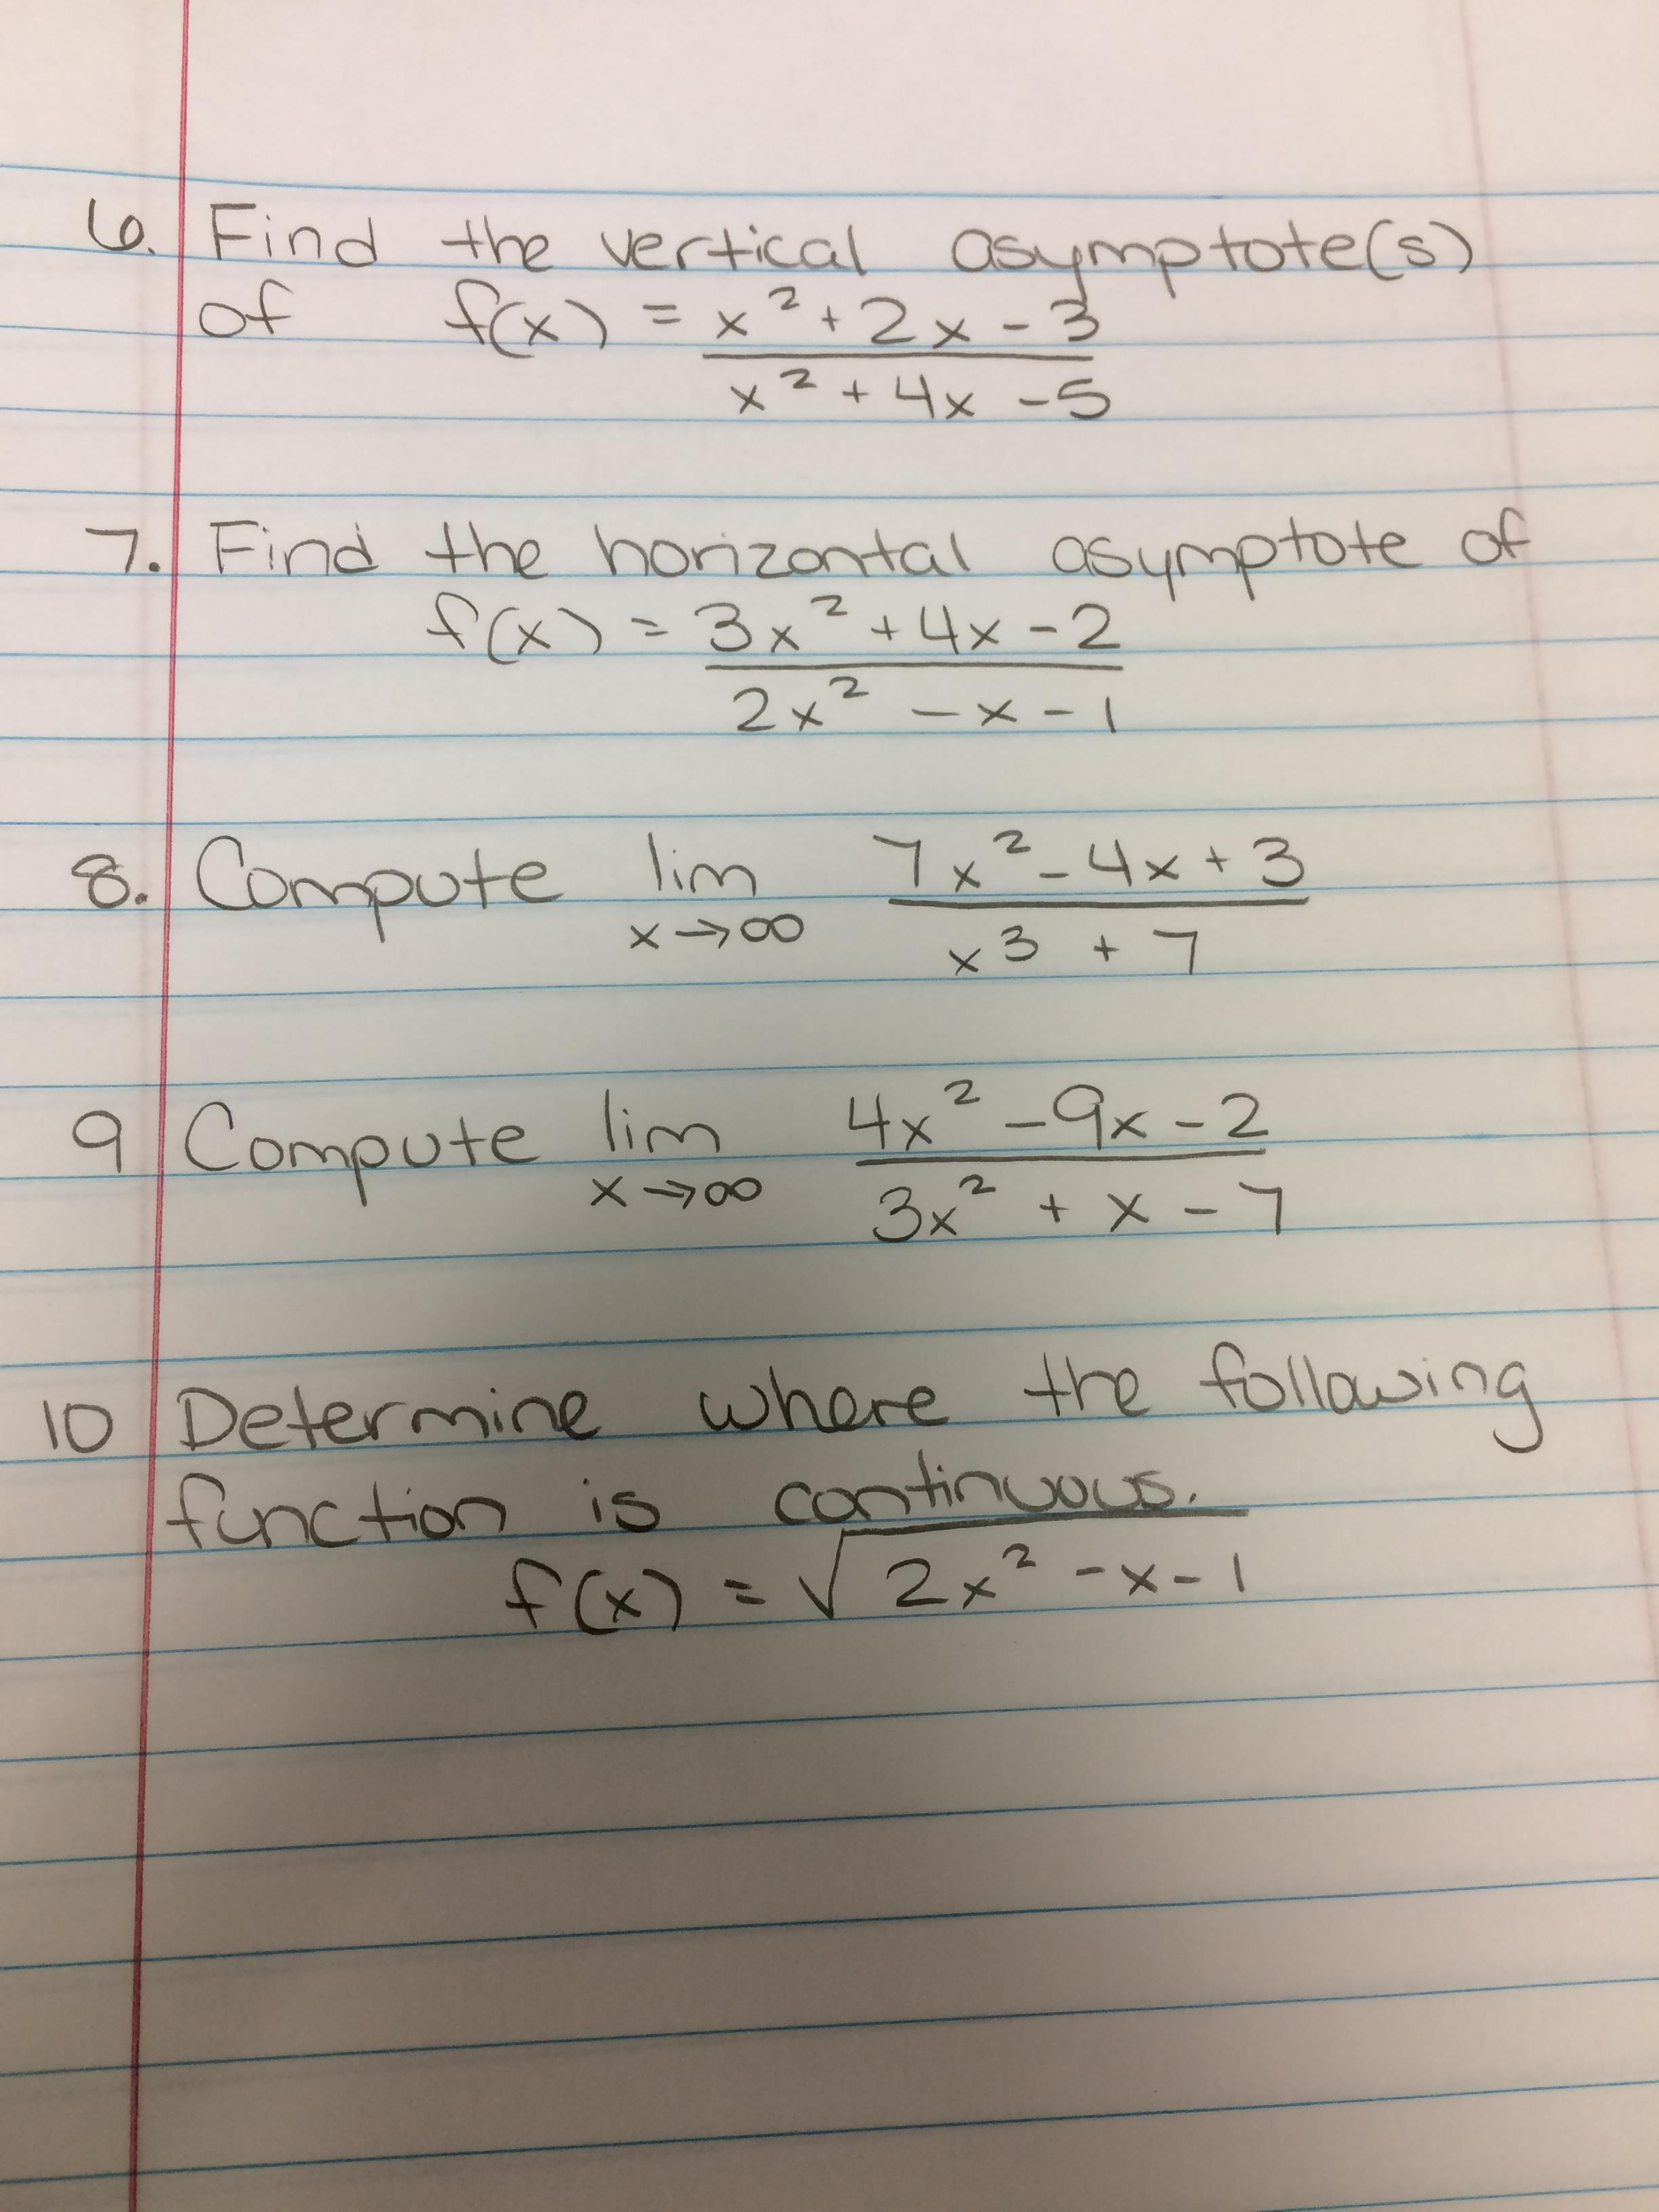 6. Find the vertical asymptote(s)
of f(x) = x² + 2x - 3
x² + 4x - 5
7. Find the horizontal asymptote of
f(x) = 3x² + 4x - 2
2x² - x - 1
8. Compute lim 7x² - 4x + 3
x→∞ x³ + 7
9 Compute lim 4x² - 9x - 2
x→∞ 3x² + x - 7
10 Determine where the following
function is continuous.
f(x) = √2x² - x - 1